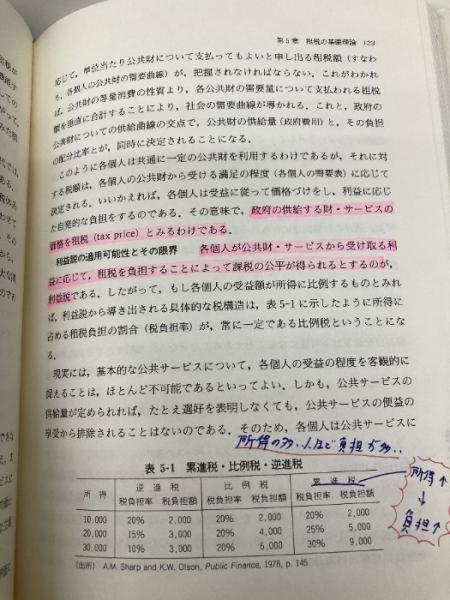 第5章 租税の基礎理論 123
応じて,単位当たり公共財について支払ってもよいと申し出る租税額(すなわ
ち,各個人の公共財の需要曲線)が,把握されなければならない.これがわかれ
ば,公共財の等量消費の性質より,各公共財の需要量について支払われる租税
額を垂直に合計することにより,社会の需要曲線が導かれる.これと,政府の
公共財についての供給曲線の交点で,公共財の供給量(政府費用)と,その負担
の配分比率とが,同時に決定されることになる.
このように各個人は共通に一定の公共財を利用するわけであるが,それに対
する税額は,各個人の公共財から受ける満足の程度(各個人の需要表)に応じて
決定される.いいかえれば,各個人は受益に従って価格づけをし,利益に応じ
た自発的な負担をするのである.その意味で,政府の供給する財・サービスの
価格を租税(tax price)とみるわけである.
利益説の適用可能性とその限界 各個人が公共財・サービスから受け取る利
益に応じて,租税を負担することによって課税の公平が得られるとするのが,
利益説である.したがって,もし各個人の受益額が所得に比例するものとみれ
ば,利益説から導き出される具体的な税構造は,表5-1に示したように所得に
占める租税負担の割合(税負担率)が,常に一定である比例税ということにな
る.
現実には,基本的な公共サービスについて,各個人の受益の程度を客観的に
捉えることは,ほとんど不可能であるといってよい.しかも,公共サービスの
供給量が定められれば,たとえ選好を表明しなくても,公共サービスの便益の
享受から排除されることはないのである.そのため,各個人は公共サービスに
所得の多い人ほど負担が多い
表 5-1 累進税・比例税・逆進税
所得 逆進税 比例税 累進税
税負担率 税負担額 税負担率 税負担額 税負担率 税負担額
10,000 20% 2,000 20% 2,000 20% 2,000
20,000 15% 3,000 20% 4,000 25% 5,000
30,000 10% 3,000 20% 6,000 30% 9,000
(出所) A.M. Sharp and K.W. Olson, Public Finance, 1978, p. 145.
所得↑
↓
負担↑